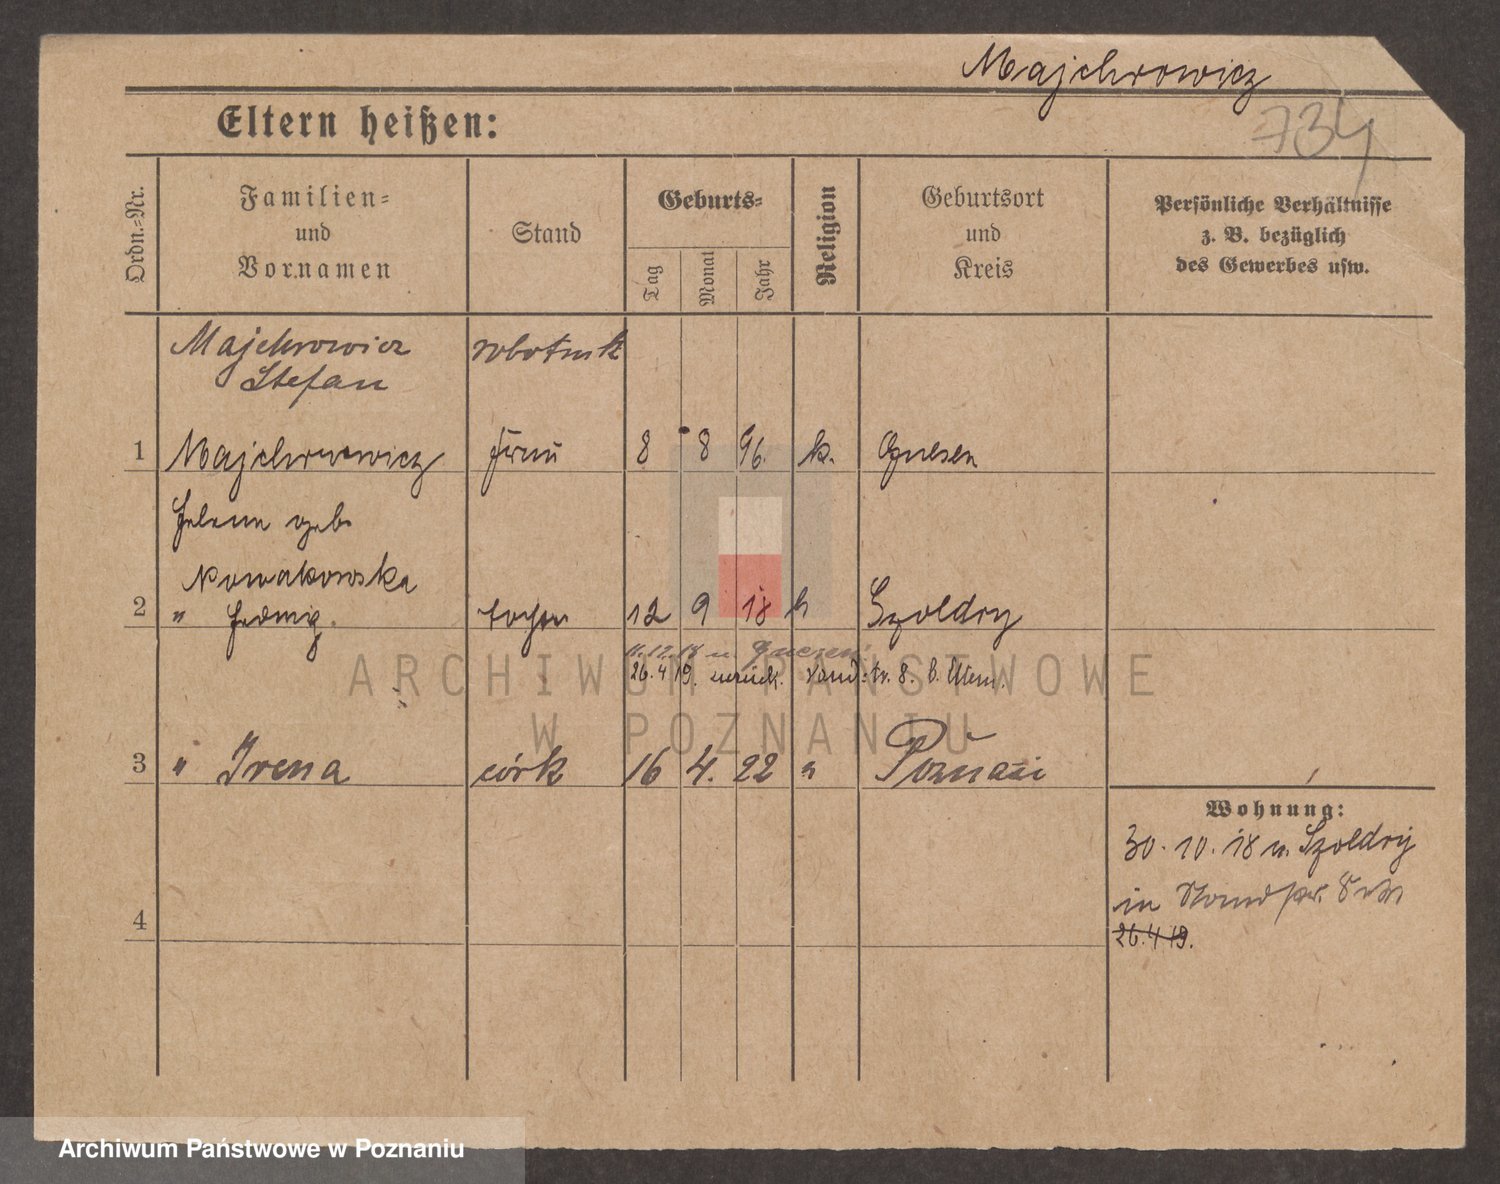 Majchrowicz
734
Eltern heißen:
Ordn.-Nr.
Familien-
und
Vornamen
Stand
Geburts-
Tag
Monat
Jahr
Religion
Geburtsort
und
Kreis
Persönliche Verhältnisse
z. B. bezüglich
des Gewerbes usw.
Majchrowicz robotnik
Stefan
1 Majchrowicz Frau 8 8 96. k. Gnesen
Helene geb.
Nowakowska
2 " Hedwig. Tochter 12 9 18 k Szoldry
11.12.18 n. Gnesen
26.4.19. zurück.
3 " Irena córk 16 4. 22 " Poznań
Wohnung:
30. 10. 18 v. Szoldry
in
26.4.19.
4
ARCHIWUM PAŃSTWOWE
W POZNANIU
Archiwum Państwowe w Poznaniu